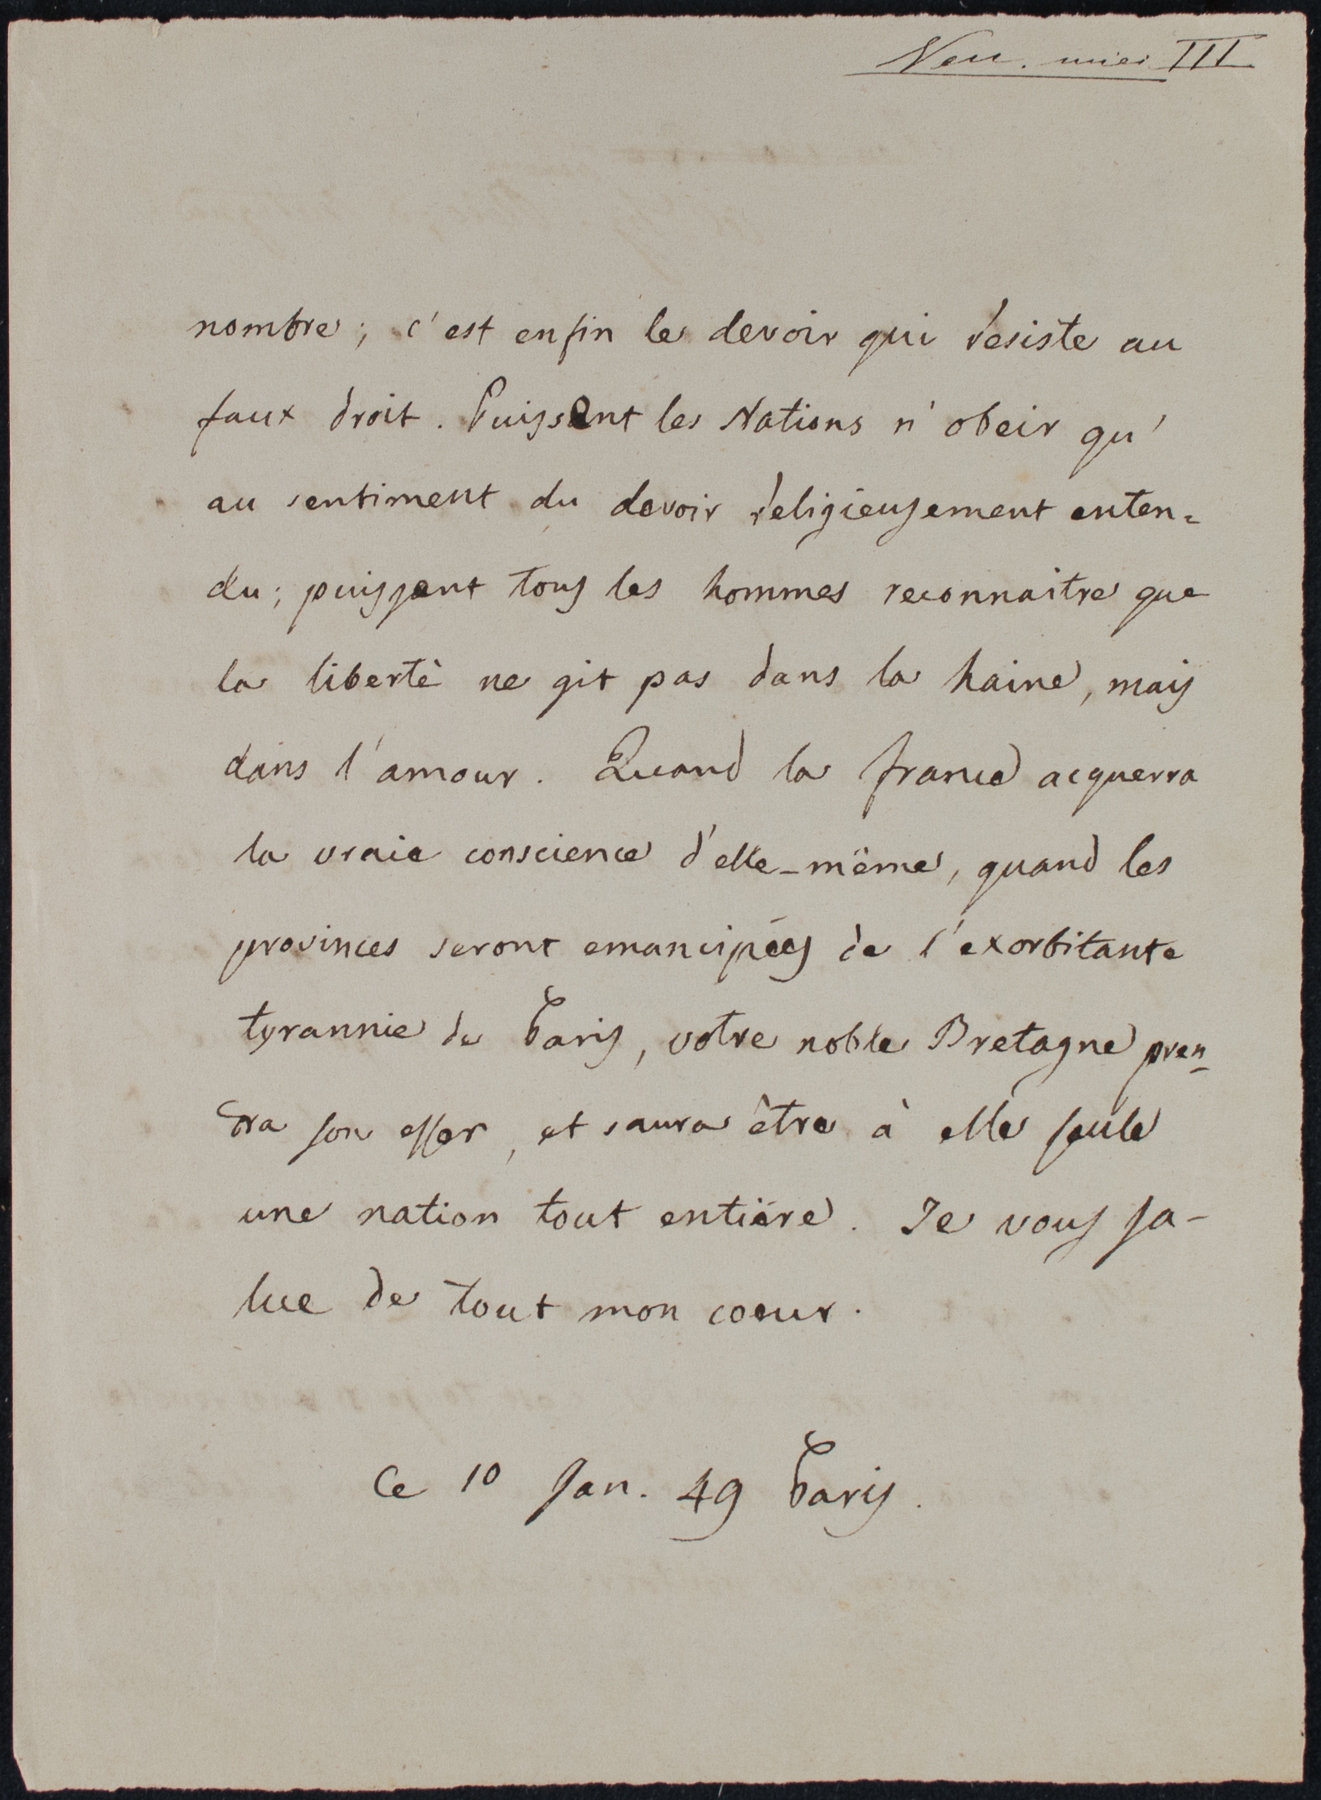 Ven. miei III
nombre; c'est enfin le devoir qui resiste au
faux droit. Puissent les Nations n'obeir qu'
au sentiment du devoir religieusement enten=
du; puissent tous les hommes reconnaitre que
la libertè ne git pas dans la haine, mais
dans l'amour. Quand la france acquerra
la vraie conscience d'elle-même, quand les
provinces seront emancipées de l'exorbitante
tyrannie de Paris, votre noble Bretagne pren-
dra son essor, et saura être à elle seule
une nation tout entière. Je vous sa-
lue de tout mon coeur.
Ce 10 Jan. 49 Paris.